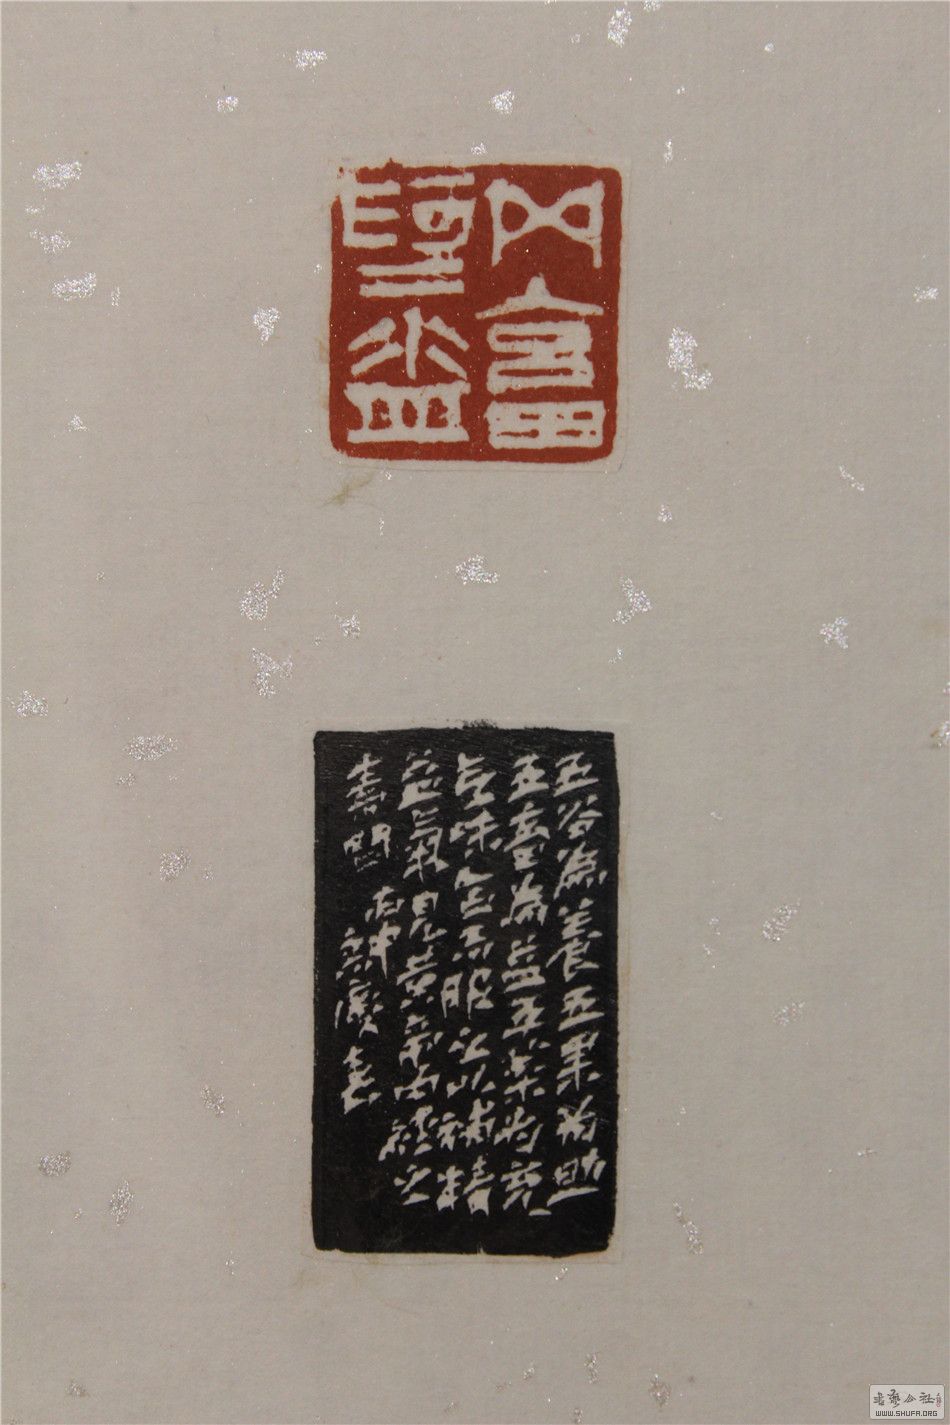 五畜
為益
五谷為養五果為助
五畜為益五菜為充
氣味合而服之以補精
益氣見黄帝內經之
素問 丙申
书艺公社
WWW.SHUFA.ORG